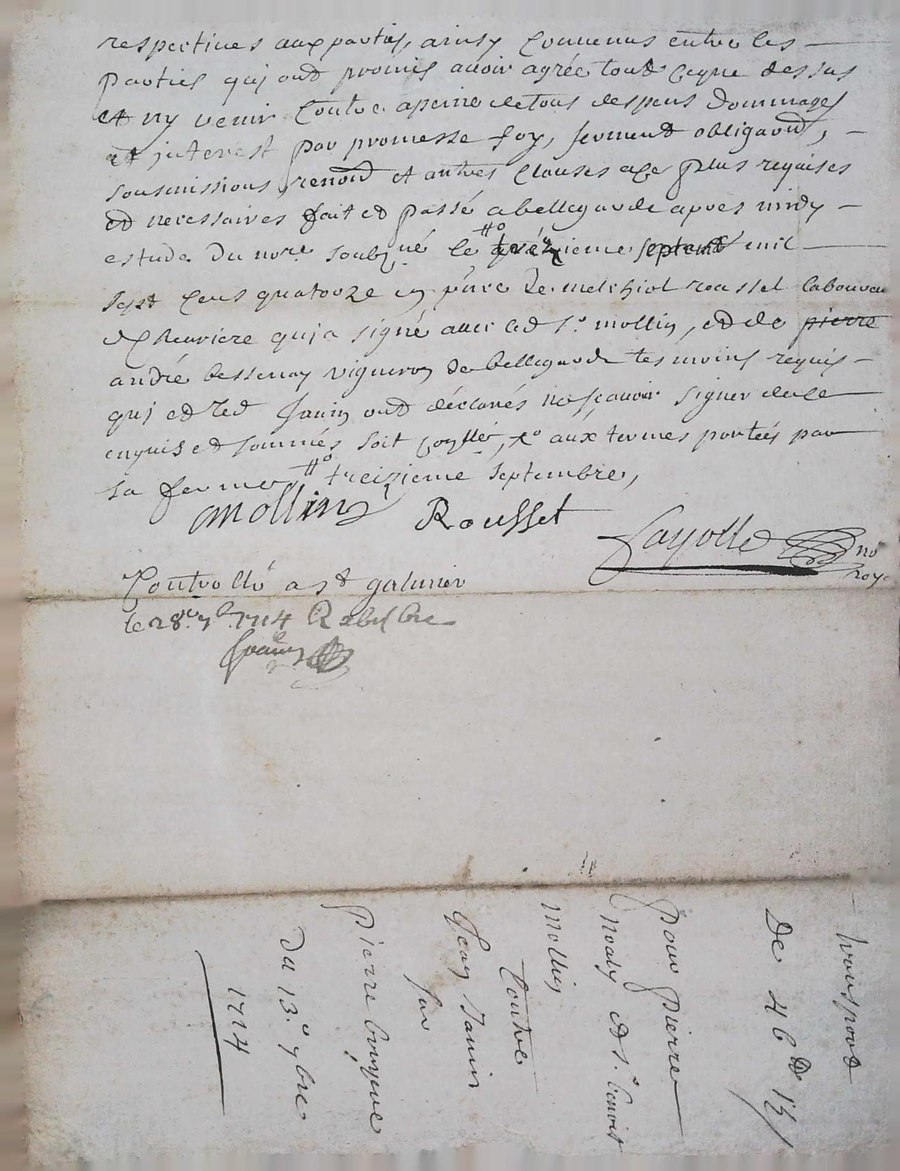 respectives aux parties, ainsy convenus entre les
Parties qui ont promis avoir agrée tout ceque dessus
et ny venir contre apeine detous despens dommages
et interest par promesse foy, serment obligaon̄,
sousmissions, renon̄ et autres clauses ace plus requises
et necessaires fait et passé abellegarde apres midy
estude du nore soubzné le treizieme septemb mil
sept cens quatorze en p̄nce de melchiol rousset laboureu
qui a signé avec led sr mollin, et de pierre
andré bessenay vigneron de bellegarde tesmoins requis
qui et led Janin ont déclarés ne sçavoir signer de ce
enquis et sommés soit aux termes portées par
sa ferme treizieme septembre,
Mollin Rousset Fayolle no
roya
Controllé a st galmier
le 28e 7bre 1714 R
transport
De 46 tt 13 s
Pour Pierre
noaly et sr benoit
mollin
Contre
Jean Janin
sur
Pierre
Du 13e 7bre
1714